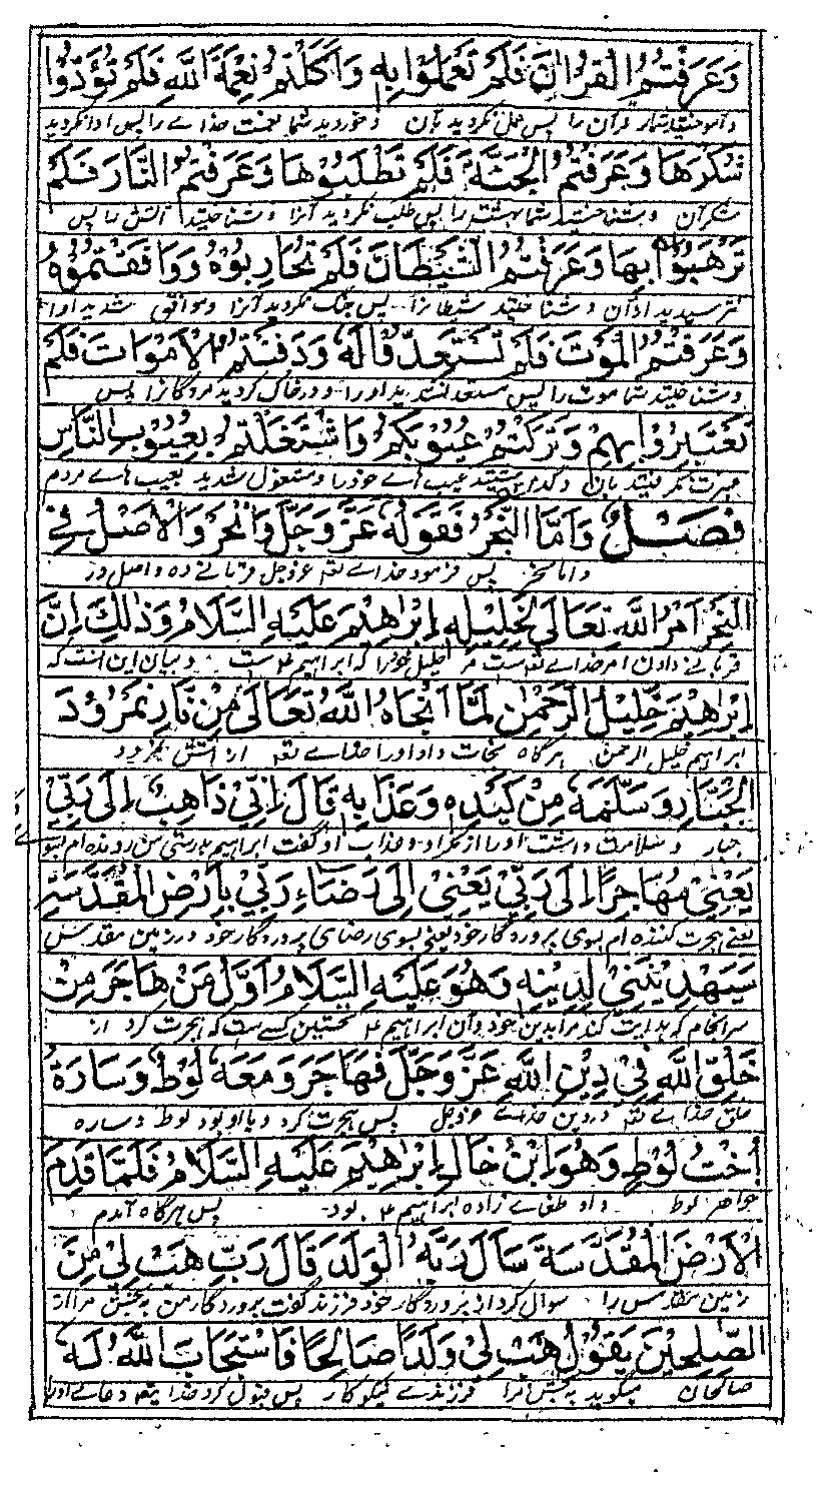 وَعَرَفْتُمُ الْقُرْاٰنَ فَلَمْ تَعْمَلُوْا بِهٖ وَاَكَلْتُمْ نِعْمَةَ اللّٰهِ فَلَمْ تُؤَدُّوْا
شما قرآن را پس عمل نکردید بآن و خوردید شما نعمت خدای را پس ادا نکردید
شُكْرَهَا وَعَرَفْتُمُ الْجَنَّةَ فَلَمْ تَطْلُبُوْهَا وَعَرَفْتُمُ النَّارَ فَلَمْ
شکر آن و شناختید شما بهشت را پس طلب نکردید آنرا و شناختید آتش را پس
تَرْهَبُوْا بِهَا وَعَرَفْتُمُ الشَّيْطَانَ فَلَمْ تُحَارِبُوْهُ وَوَافَقْتُمُوْهُ
نترسیدید ازان و شناختید شیطانرا پس جنگ نکردید آنرا و موافق شدید اورا
وَعَرَفْتُمُ الْمَوْتَ فَلَمْ تَسْتَعِدُّوْا لَهٗ وَدَفَنْتُمُ الْاَمْوَاتَ فَلَمْ
و شناختید شما موت را پس مستعد نشدید اورا و در خاک کردید مردگانرا پس
تَعْتَبِرُوْا بِهِمْ وَتَرَكْتُمْ عُيُوْبَكُمْ وَاشْتَغَلْتُمْ بِعُيُوْبِ النَّاسِ
عبرت نگرفتید بآن و گذاشتید عیب هاے خود را و مشغول شدید بعیب هاے مردم
فَصْلٌ وَاَمَّا النَّحْرُ فَقَوْلُهٗ عَزَّ وَجَلَّ وَانْحَرْ وَالْاَصْلُ فِيْ
و اما نحر پس فرمود خداے تعه عزوجل قربانے ده و اصل در
النَّحْرِ اَمْرُ اللّٰهِ تَعَالٰى لِخَلِيْلِهٖ اِبْرٰهِيْمَ عَلَيْهِ السَّلَامُ وَذٰلِكَ اِنَّ
قربانے دادن امر خداے تعه است مر خلیل خود را که ابراهیم ع است و بیان این است که
اِبْرٰهِيْمَ خَلِيْلَ الرَّحْمٰنِ لَمَّا اَنْجَاهُ اللّٰهُ تَعَالٰى مِنْ نَّارِ نَمْرُوْدَ
ابراهیم خلیل الرحمن هر گاه نجات داد اورا خداے تعه از آتش نمرود
الْجَبَّارِ وَسَلَّمَهٗ مِنْ كَيْدِهٖ وَعَذَابِهٖ قَالَ اِنِّيْ ذَاهِبٌ اِلٰى رَبِّيْ
جبار و سلامت داشت اورا از مکر او و عذاب او گفت ابراهیم بدرستی من رونده ام بسو
يَعْنِيْ مُهَاجِرًا اِلٰى رَبِّيْ يَعْنِيْ اِلٰى رَضَاءِ رَبِّيْ بِاَرْضِ الْمُقَدَّسَةِ
یعنے هجرت کننده ام بسوی پروردگار خود یعنی بسوی رضای پروردگار خود در زمین مقدس
سَيَهْدِيْنَنِيْ لِدِيْنِهٖ وَهُوَ عَلَيْهِ السَّلَامُ اَوَّلُ مَنْ هَاجَرَ مِنْ
سرانجام که هدایت کند مرا بدین خود و آن ابراهیم ع نخستین کسے ست که هجرت کرد از
خَلْقِ اللّٰهِ فِيْ دِيْنِ اللّٰهِ عَزَّ وَجَلَّ فَهَاجَرَ وَمَعَهٗ لُوْطٌ وَسَارَةُ
خلق خداے تعه در دین خداے عزوجل پس هجرت کرد و با او بود لوط و ساره
اُخْتُ لُوْطٍ وَهُوَ ابْنُ خَالِ اِبْرٰهِيْمَ عَلَيْهِ السَّلَامُ فَلَمَّا قَدِمَ
خواهر لوط و او زاده ابراهیم ع بود پس هر گاه آمدم
الْاَرْضَ الْمُقَدَّسَةَ سَاَلَ رَبَّهُ الْوَلَدَ قَالَ رَبِّ هَبْ لِيْ مِنَ
زمین مقدس را سوال کرد از پروردگار خود فرزند گفت پروردگار من به بخش مرا از
الصّٰلِحِيْنَ يَقُوْلُ هَبْ لِيْ وَلَدًا صَالِحًا فَاسْتَجَابَ اللّٰهُ لَهٗ
صالحان میگوید به بخش مرا فرزندے نیکوکار پس قبول کرد خدا تعه دعاے اورا